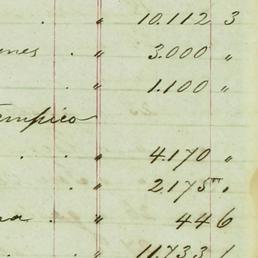 . " 10.112 3
nes " 3.000 "
" 1.100 "
Tempico
. . " 4.170 "
. " 2175
na . " 446
. . " 11.733 1